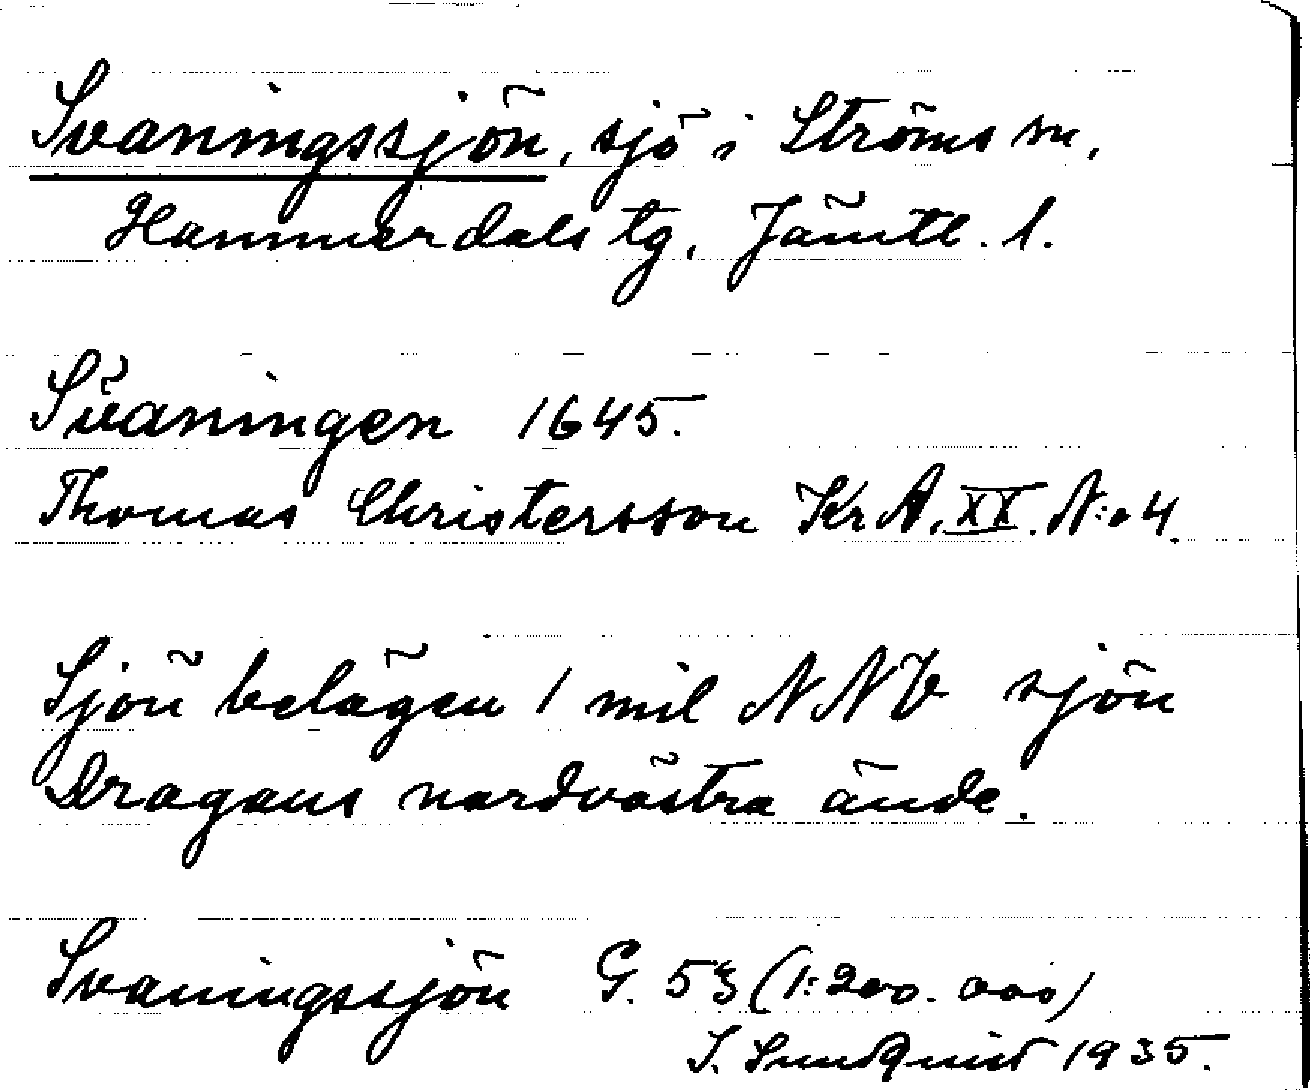 Svaningssjön, sjö i Ströms sn,
Hammerdals tg, Jämtl. l.
Svaningen 1645.
Thomas Christersson KrA. XX. N:o 4.
Sjön belägen 1 mil NNV sjön
Dragans nordvästra ände.
Svaningssjön G. 53 (1:200.000)
I. Sundquist 1935.